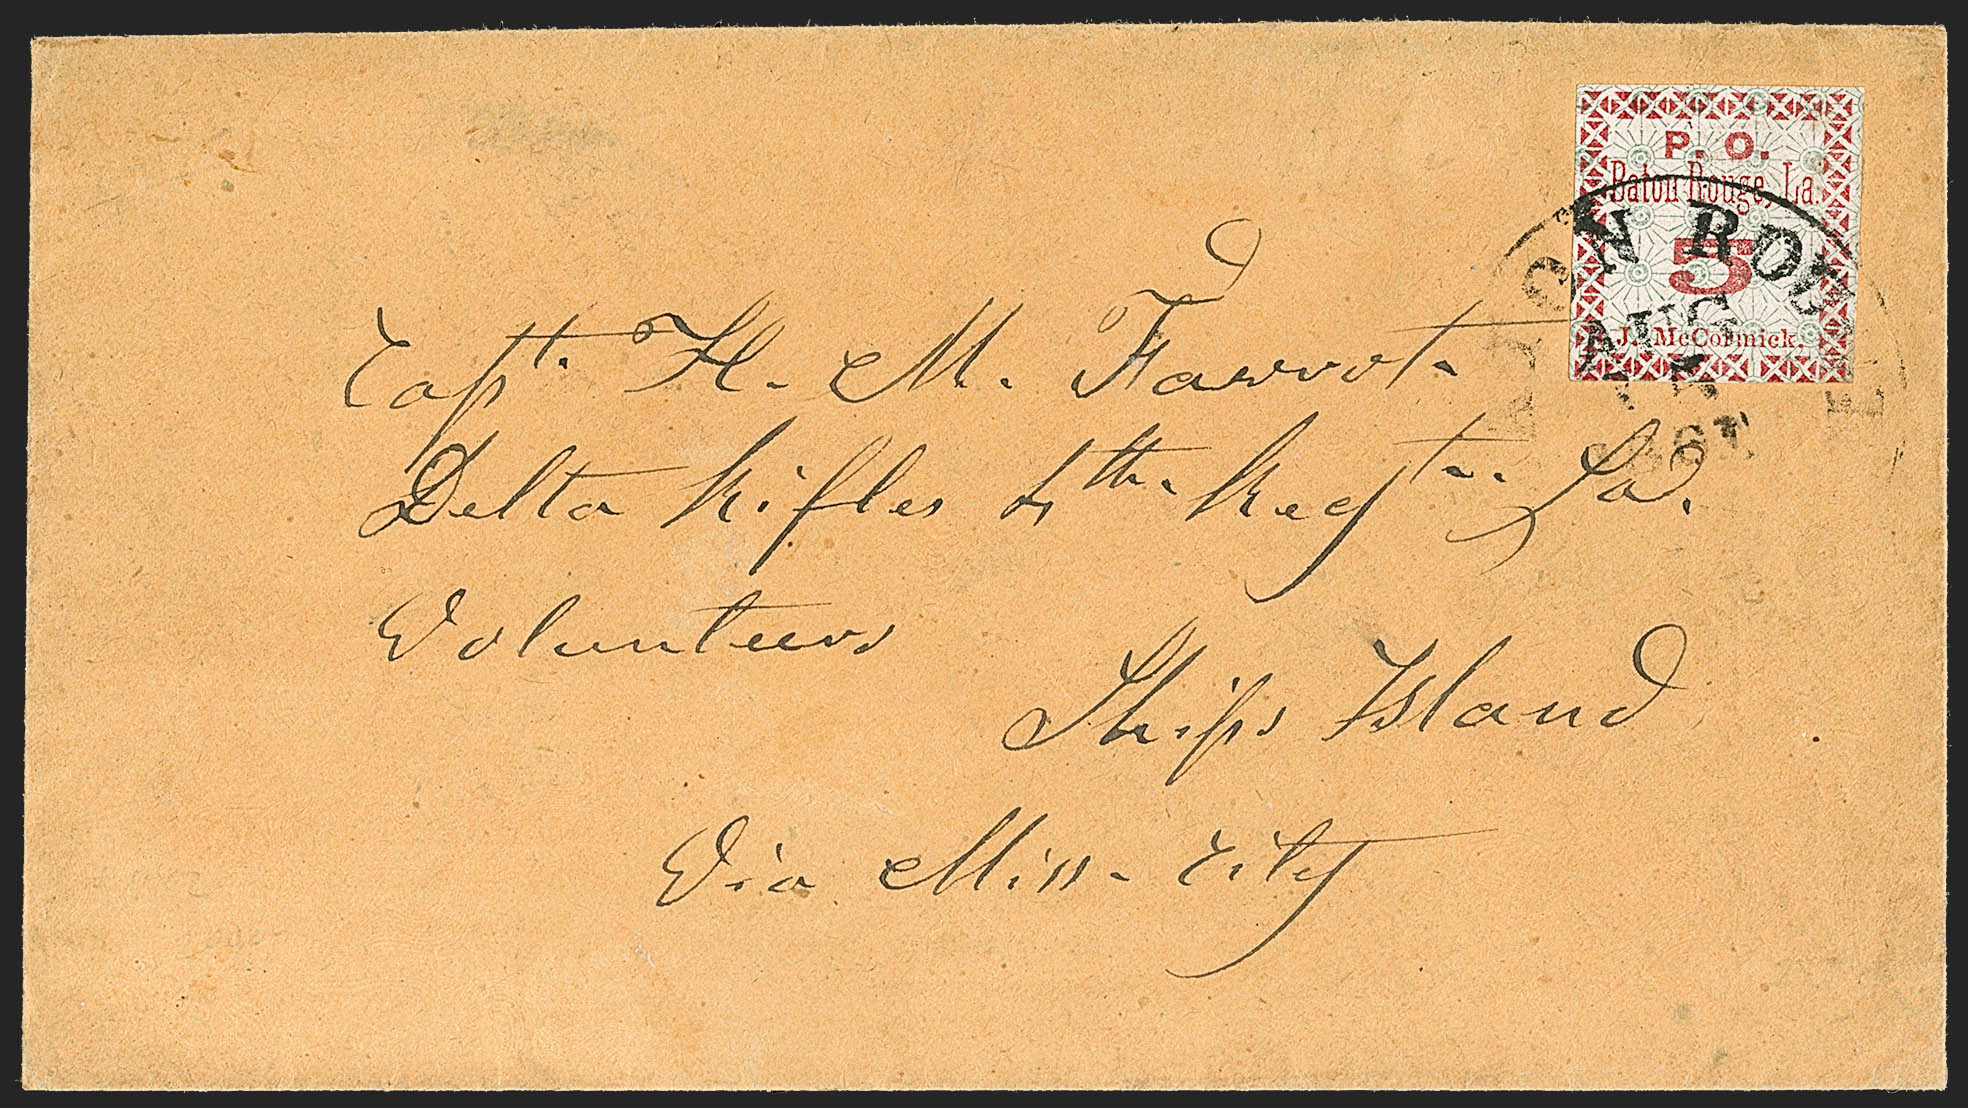 P. O.
Baton Rouge, La.
5
J. McCormick.
TON ROUGE
AUG
Capt. H. M. Favrot
Delta Rifles 4th. Regt.. La.
Volunteers
Ships Island
Via Miss. City